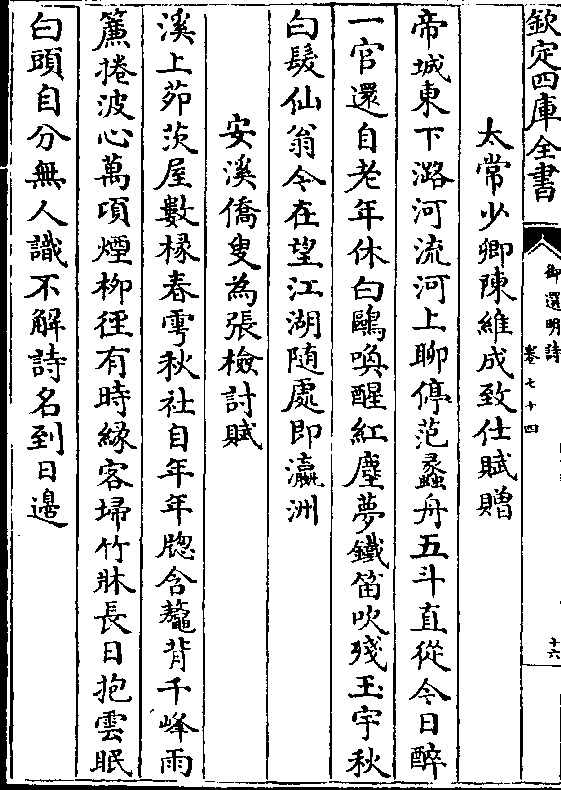 欽定四庫全書
御選明詩
卷七十四
十六
太常少卿陳維成致仕賦贈
帝城東下潞河流河上聊停范蠡舟五斗直從今日醉
一官還自老年休白鷗喚醒紅塵夢鐵笛吹殘玉宇秋
白髮仙翁今在望江湖随處即瀛洲
安溪僑叟為張檢討賦
溪上茆茨屋數椽春雩秋社自年年牕含鼇背千峰雨
簾捲波心萬頃煙栁徑有時緣客埽竹牀長日抱雲眠
白頭自分無人識不解詩名到日邊